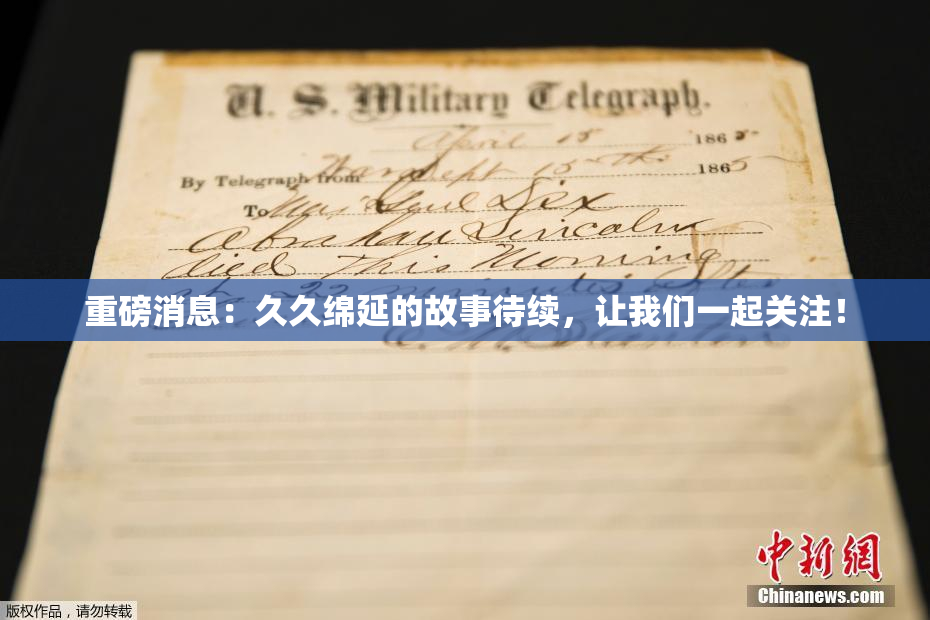 U. S. Military Telegraph.
April 15 1865
By Telegraph from War Dept 15th 1865
To Maj Genl Dix
Abraham Lincoln
died This Morning
at 22 minutes after
重磅消息：久久绵延的故事待续，让我们一起关注！
E. M. Stanton
中新网
Chinanews.com
版权作品，请勿转载